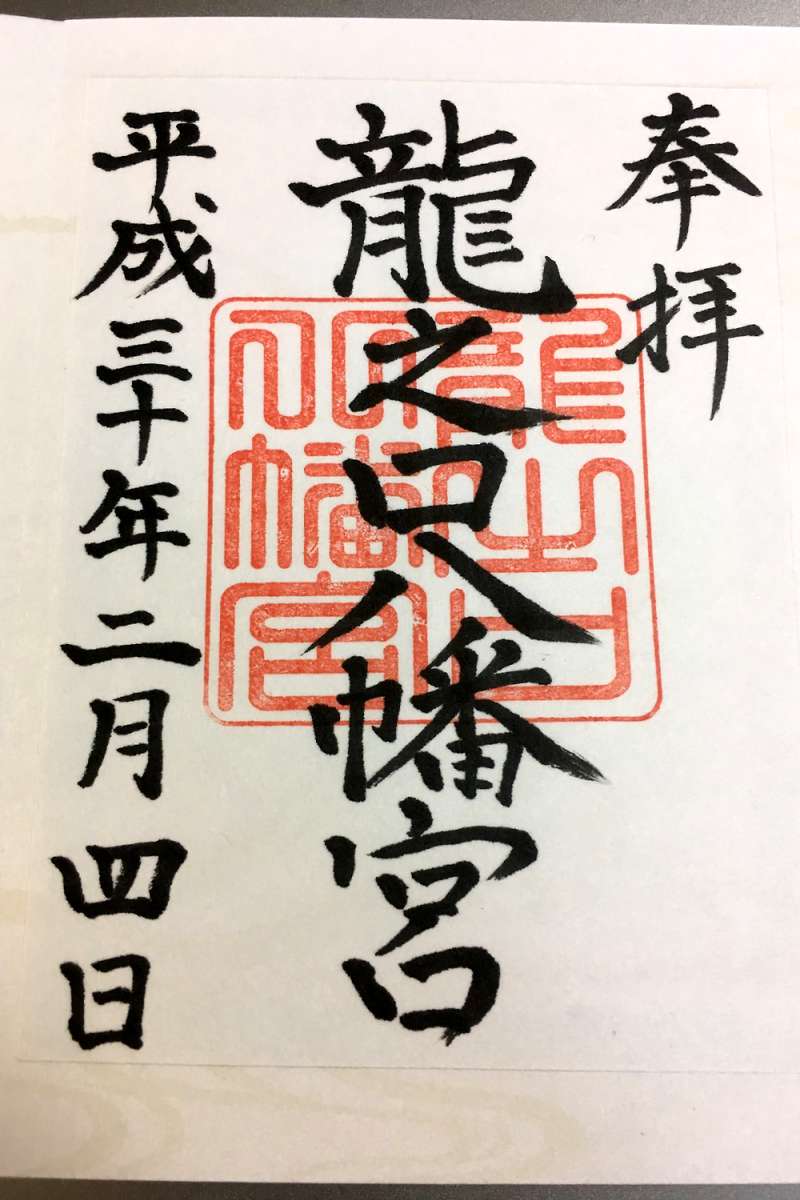 奉拝
龍之口八幡宮
龍之口八幡宮
平成三十年二月四日